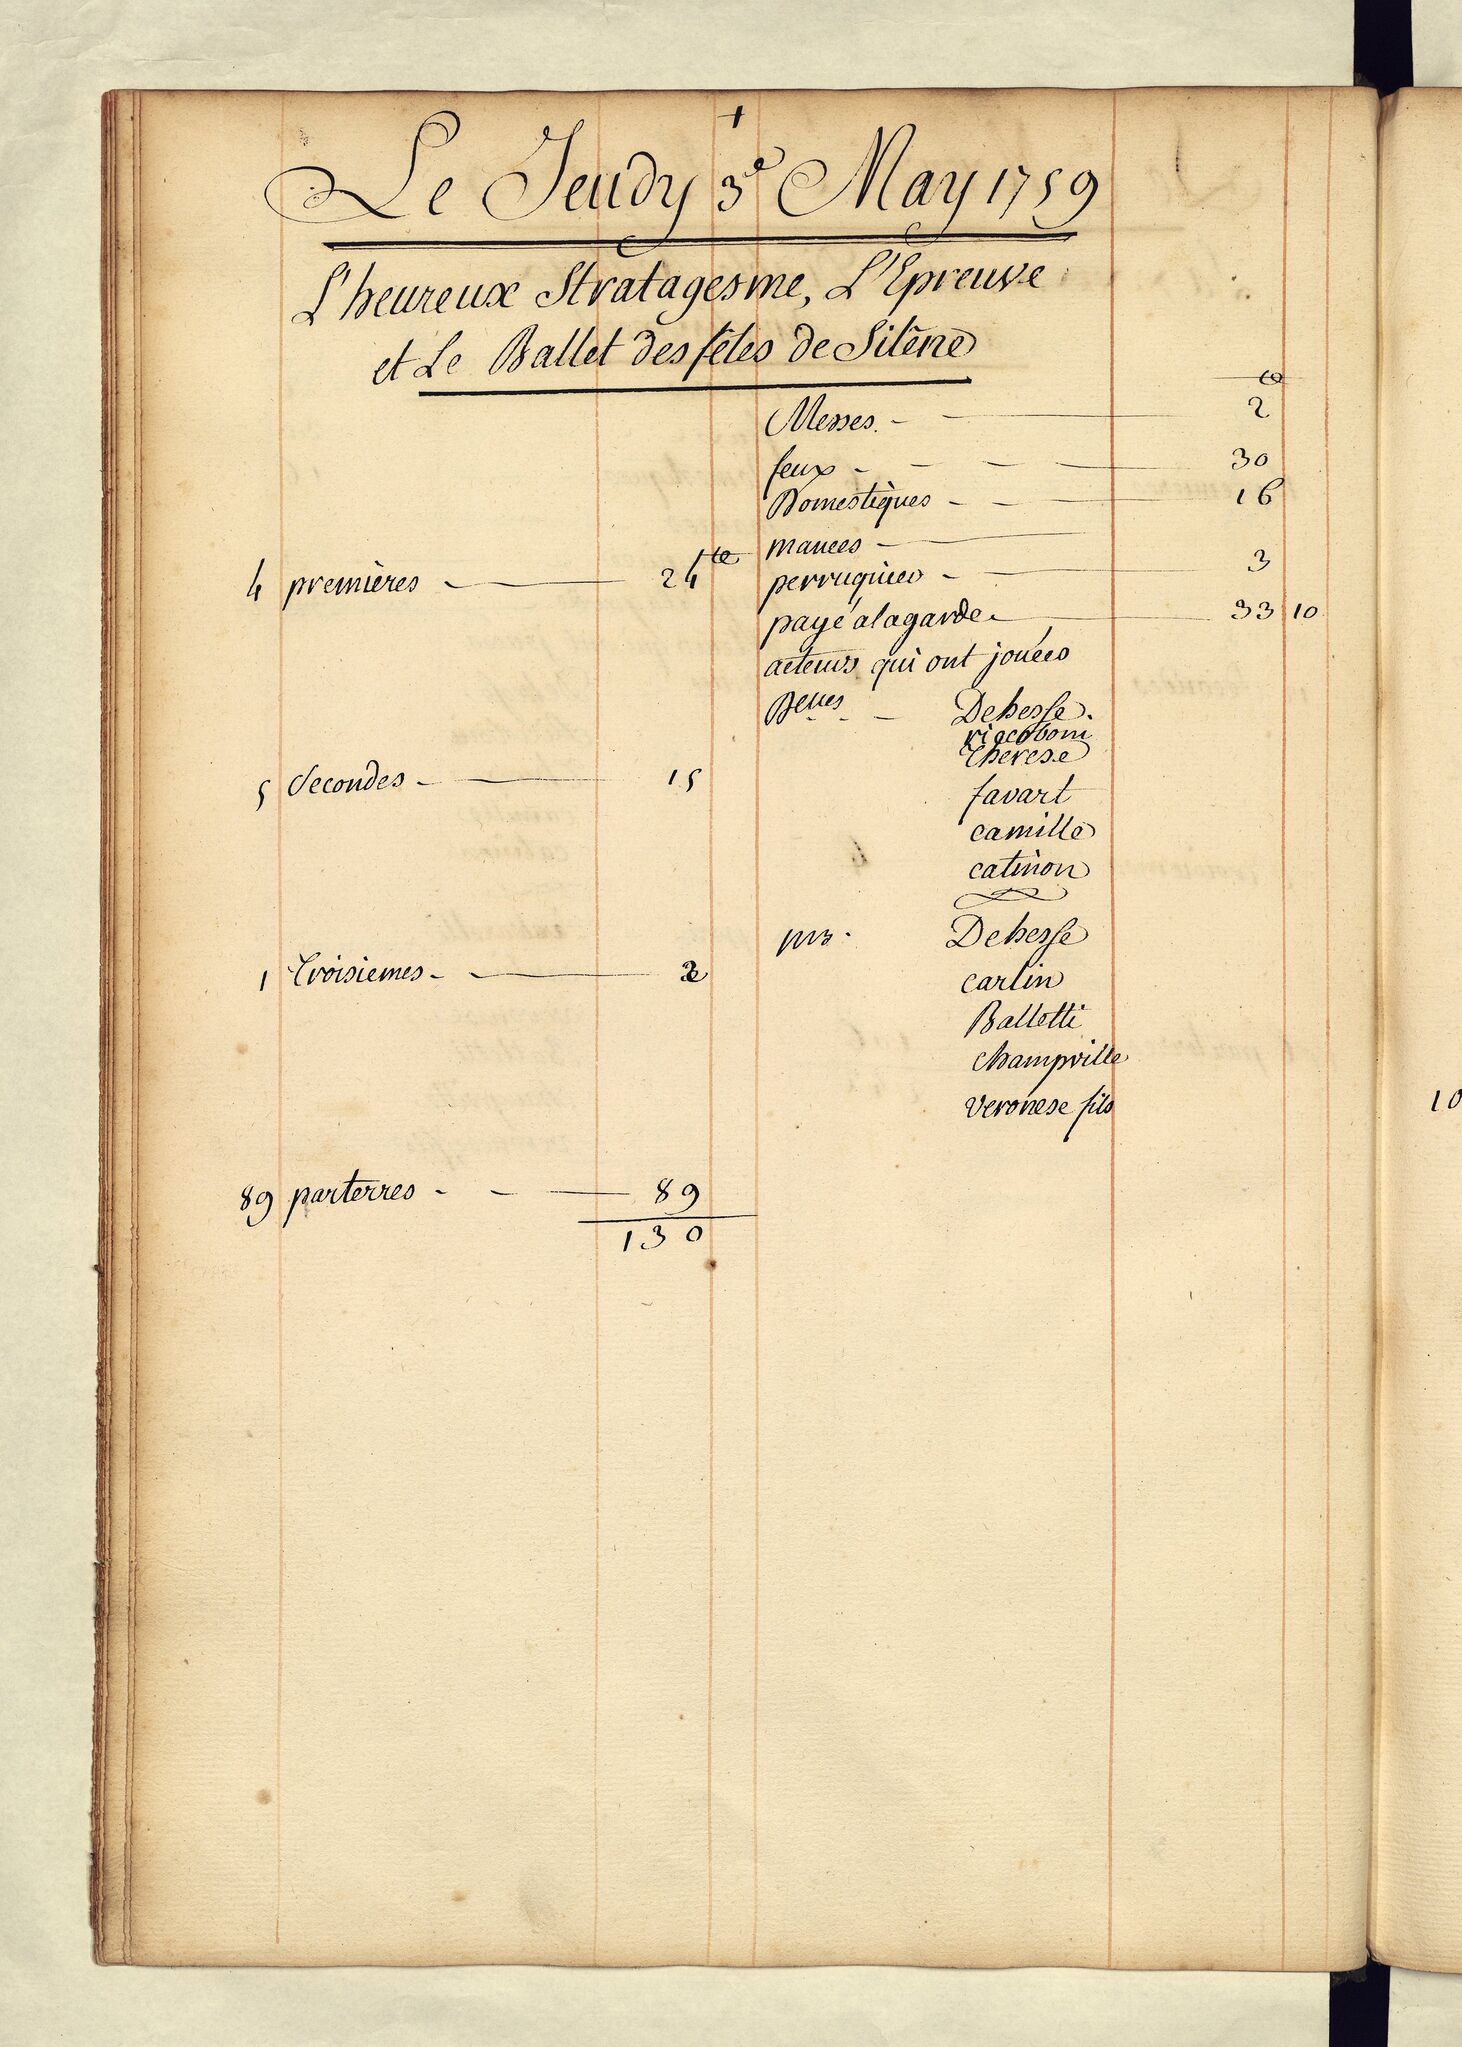 +
Le Jeudy 3e May 1759
L'heureux Stratagesme, L'Epreuve
et Le Ballet des fêtes de Silêne
4 premières 24 ₶
5 Secondes 15
1 Troisiemes 2
89 parterres 89
130
₶
Messes 2
feux 30
Domestiques 16
mances
perruquiers 3
payé a la garde 33 10
acteurs qui ont jouées
Delles Dehesse
riccoboni
Therese
favart
camille
catinon
mrs Dehesse
carlin
Balletti
champville
veronese fils
10